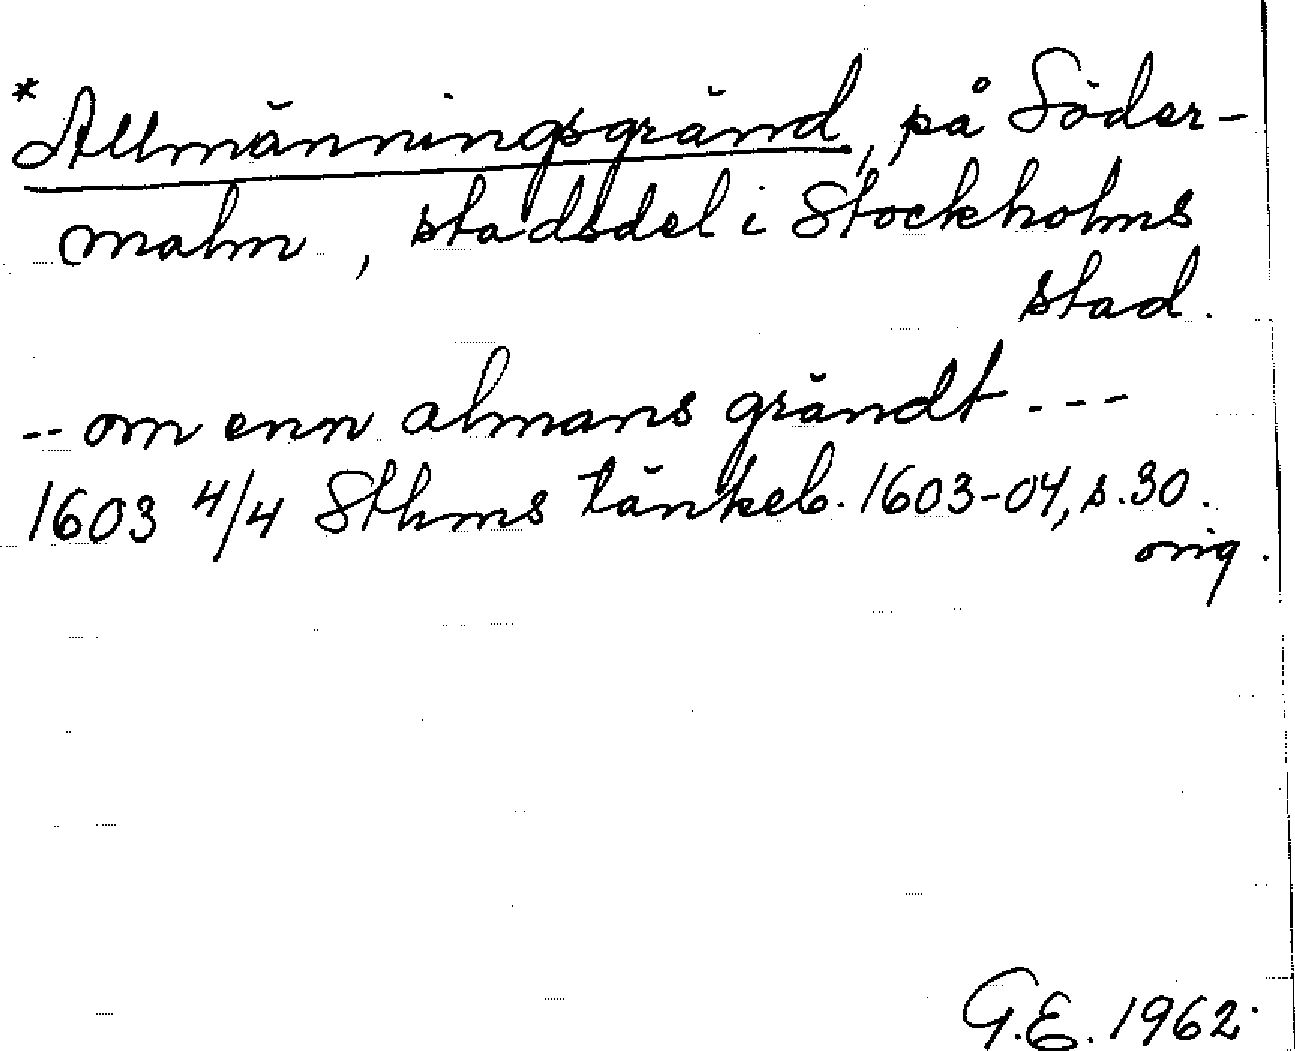 *Allmänningsgränd, på Söder-
malm, stadsdel i Stockholms
stad.
-- om enn almans grändt ---
1603 4/4 Sthms tänkeb. 1603-04, s. 30.
orig.
G.E. 1962.